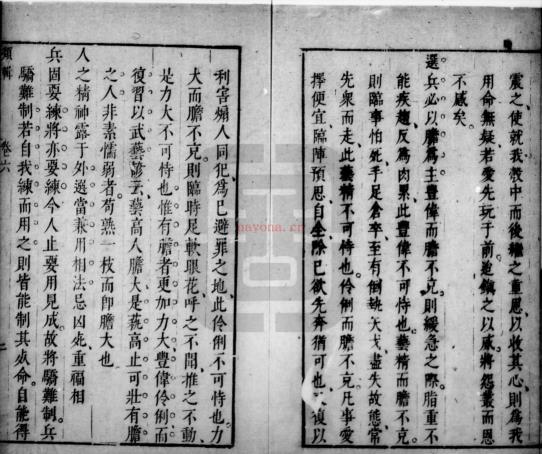 震之使就我彀中而後糧之重恩以收其心則爲我
用命無疑若愛先玩于前迨鎮之以威將怨叢而恩
不感矣
選兵必以膽爲主豐偉而膽不克則緩急之際脂重不
能疾趨反爲肉累此豐偉不可恃也藝精而膽不克
則臨事怕死手足倉卒至有倒執矢戈盡失故態常
先衆而走此藝精不可恃也伶俐而膽不克凡事愛
擇便宜臨陣預思自全除已欲先奔猶可也又復以
利害煽人同犯爲已避罪之地此伶俐不可恃也力
大而膽不克則臨時足軟眼花呼之不聞推之不動
是力大不可恃也惟有膽者更加力大豐偉伶俐而
復習以武藝諺云藝高人膽大是藝高止可壯有膽
之人非素懦弱者苟熟一枝而即膽大也
人之精神露于外選當兼用相法忌凶死重福相
兵固要練將亦要練今人止要用見成故將驕難制兵
驕難制若自我練而用之則皆能制其死命自能得
類輯 卷六 二
nayona.cn